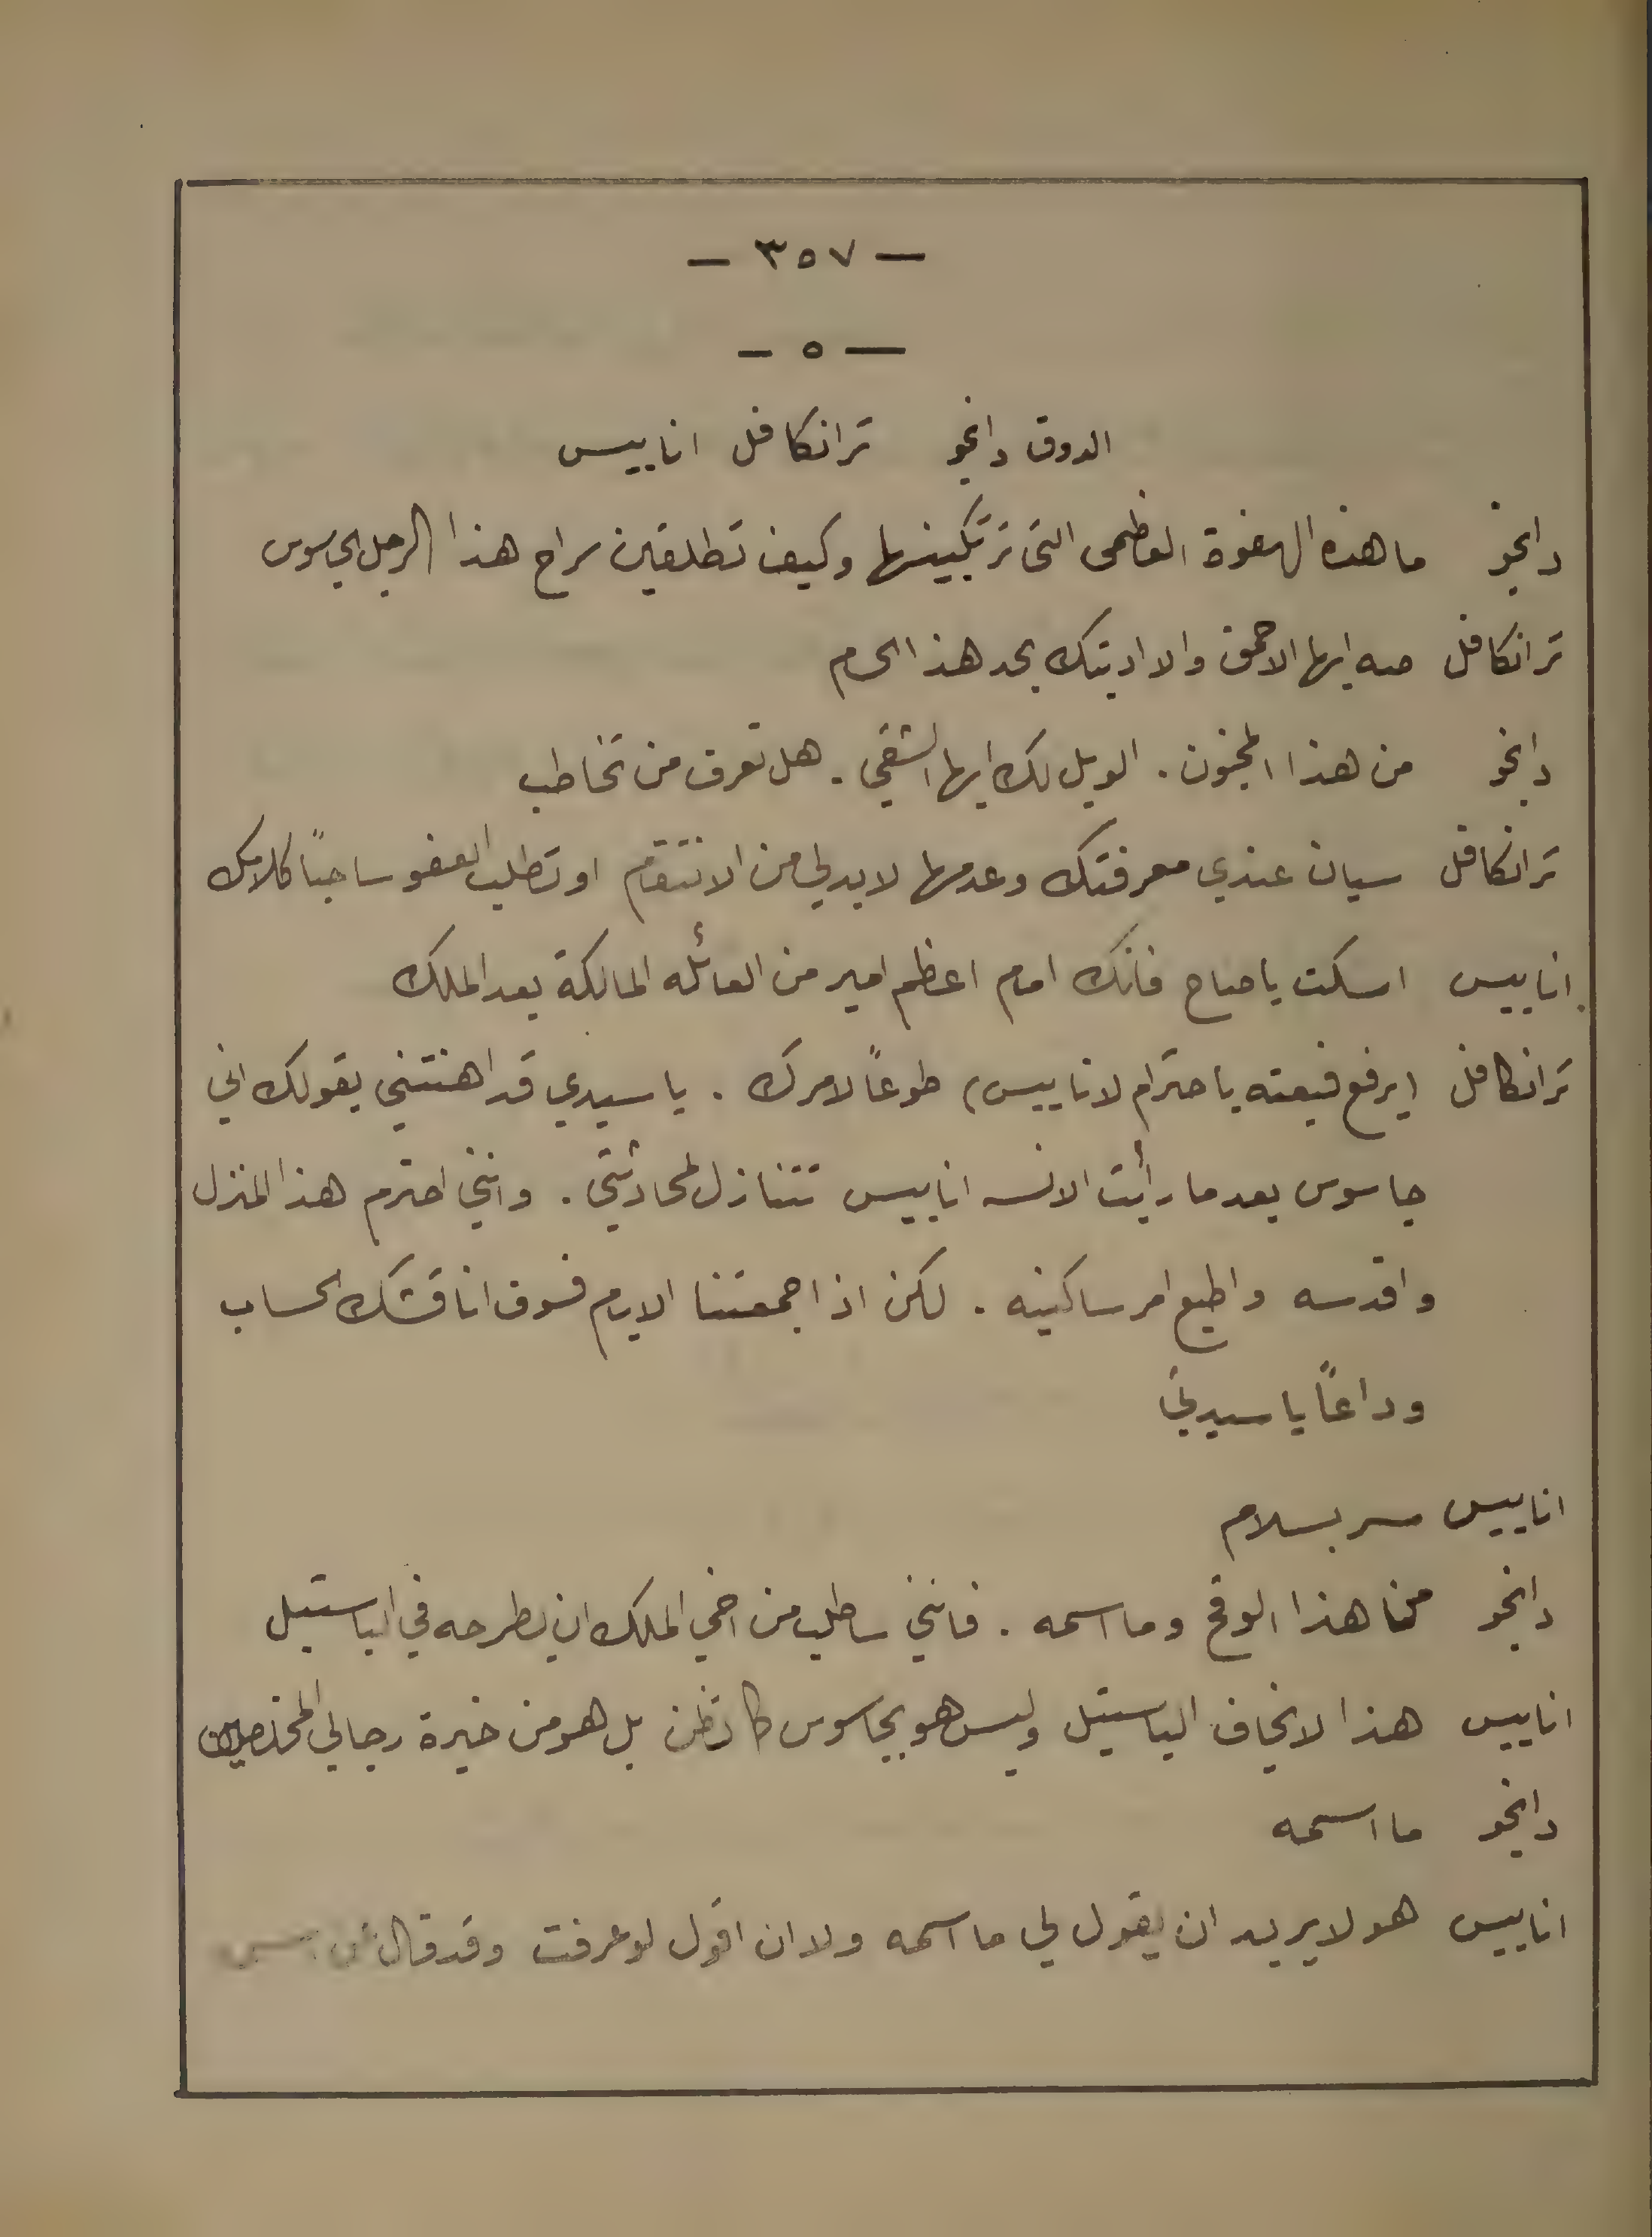 — ٣٥٧ —
— ٥ —
الدوق دانجو ترانكافل اناييس
دانجو ما هذه الهفوة العظمى التى ترتكبينها وكيف تطلقين سراح هذا الرجل الجاسوس
ترانكافل صه ايها الاحمق والا ادبتك بحد هذا الحسام
دانجو من هذا المجنون . الويل لك ايها الشقي . هل تعرف من تخاطب
ترانكافل سيان عندي معرفتك وعدمها لا بد لي من الانتقام او تطلب العفو ساحباً كلامك
اناييس اسكت يا صاح فانك امام اعظم امير من العائله المالكة بعد الملك
ترانكافل (يرفع قبعته باحترام لاناييس) طوعاً لامرك . يا سيدي قد اهنتني بقولك اني
جاسوس بعد ما رأيت الانسه اناييس تتنازل لمحادثتي . وانني احترم هذا المنزل
واقدسه واطيع امر ساكنيه . لكن اذا جمعتنا الايام فسوف اناقشك الحساب
وداعاً يا سيدتي
اناييس سر بسلام
دانجو من هذا الوقح وما اسمه . فانني ساطلب من اخي الملك ان يطرحه في الباستيل
اناييس هذا لا يخاف الباستيل وليس هو بجاسوس كما تظن بل هو من خيرة رجالي المخلصين
دانجو ما اسمه
اناييس هو لا يريد ان يقول لي ما اسمه ولا ان اقول لو عرفت وقد قال